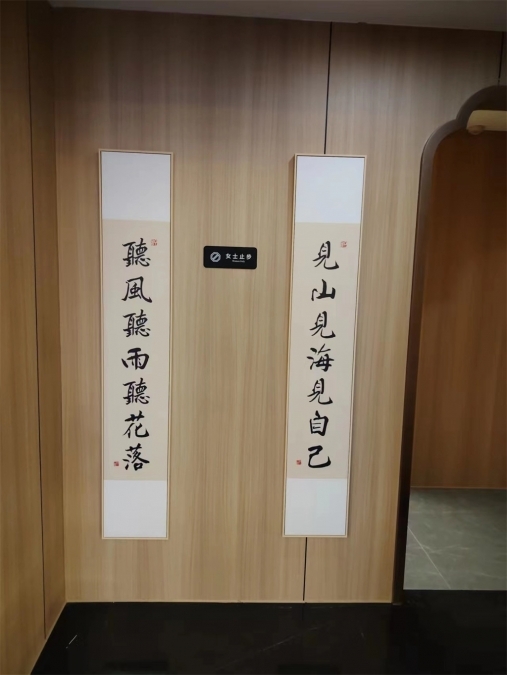 見山見海見自己
女士止步
聽風聽雨聽花落